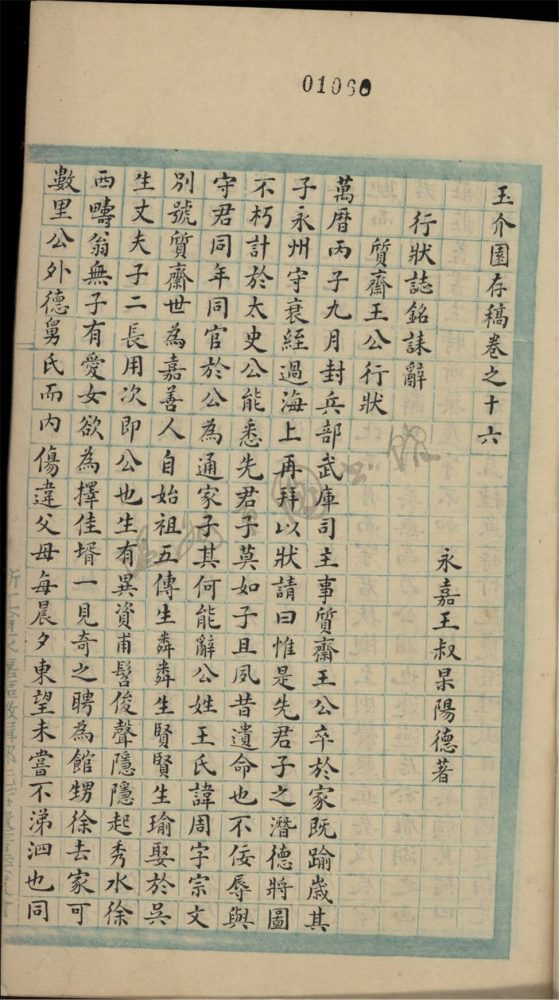 01060
玉介園存稿卷之十六
永嘉王叔杲陽德著
行狀誌銘誄辭
質齋王公行狀
萬曆丙子九月封兵部武庫司主事質齋王公卒於家既踰歲其
子永州守衰絰過海上再拜以狀請曰惟是先君子之潛德將圖
不朽計於太史公能悉先君子莫如子且夙昔遺命也不佞辱與
守君同年同官於公為通家子其何能辭公姓王氏諱周字宗文
別號質齋世為嘉善人自始祖五傳生粦粦生賢賢生瑜娶於吳
生丈夫子二長用次即公也生有異資甫髫俊聲隱隱起秀水徐
西疇翁無子有愛女欲為擇佳壻一見奇之聘為館甥徐去家可
數里公外德舅氏而內傷違父母每晨夕東望未嘗不涕泗也同